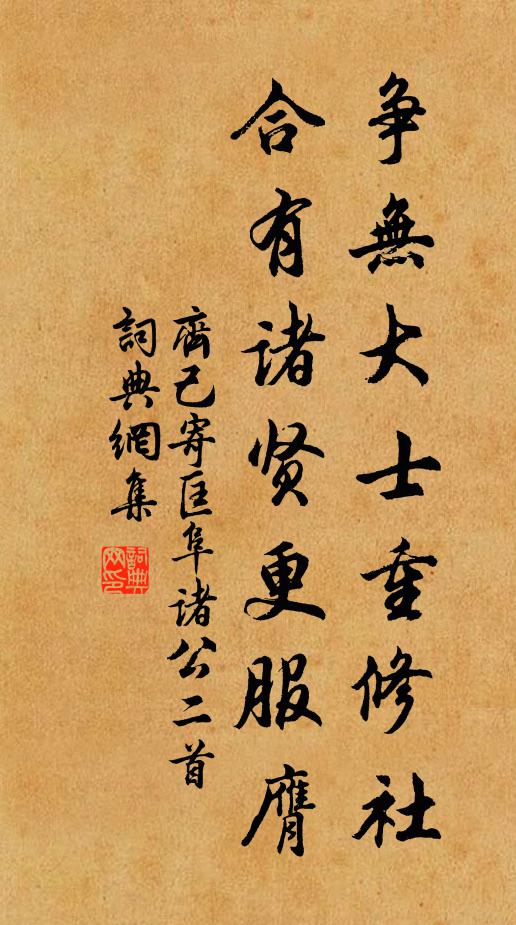 争無大士重修社
合有诸贤更服膺
齊己寄匡阜诸公二首
詞典網集
詞典網印